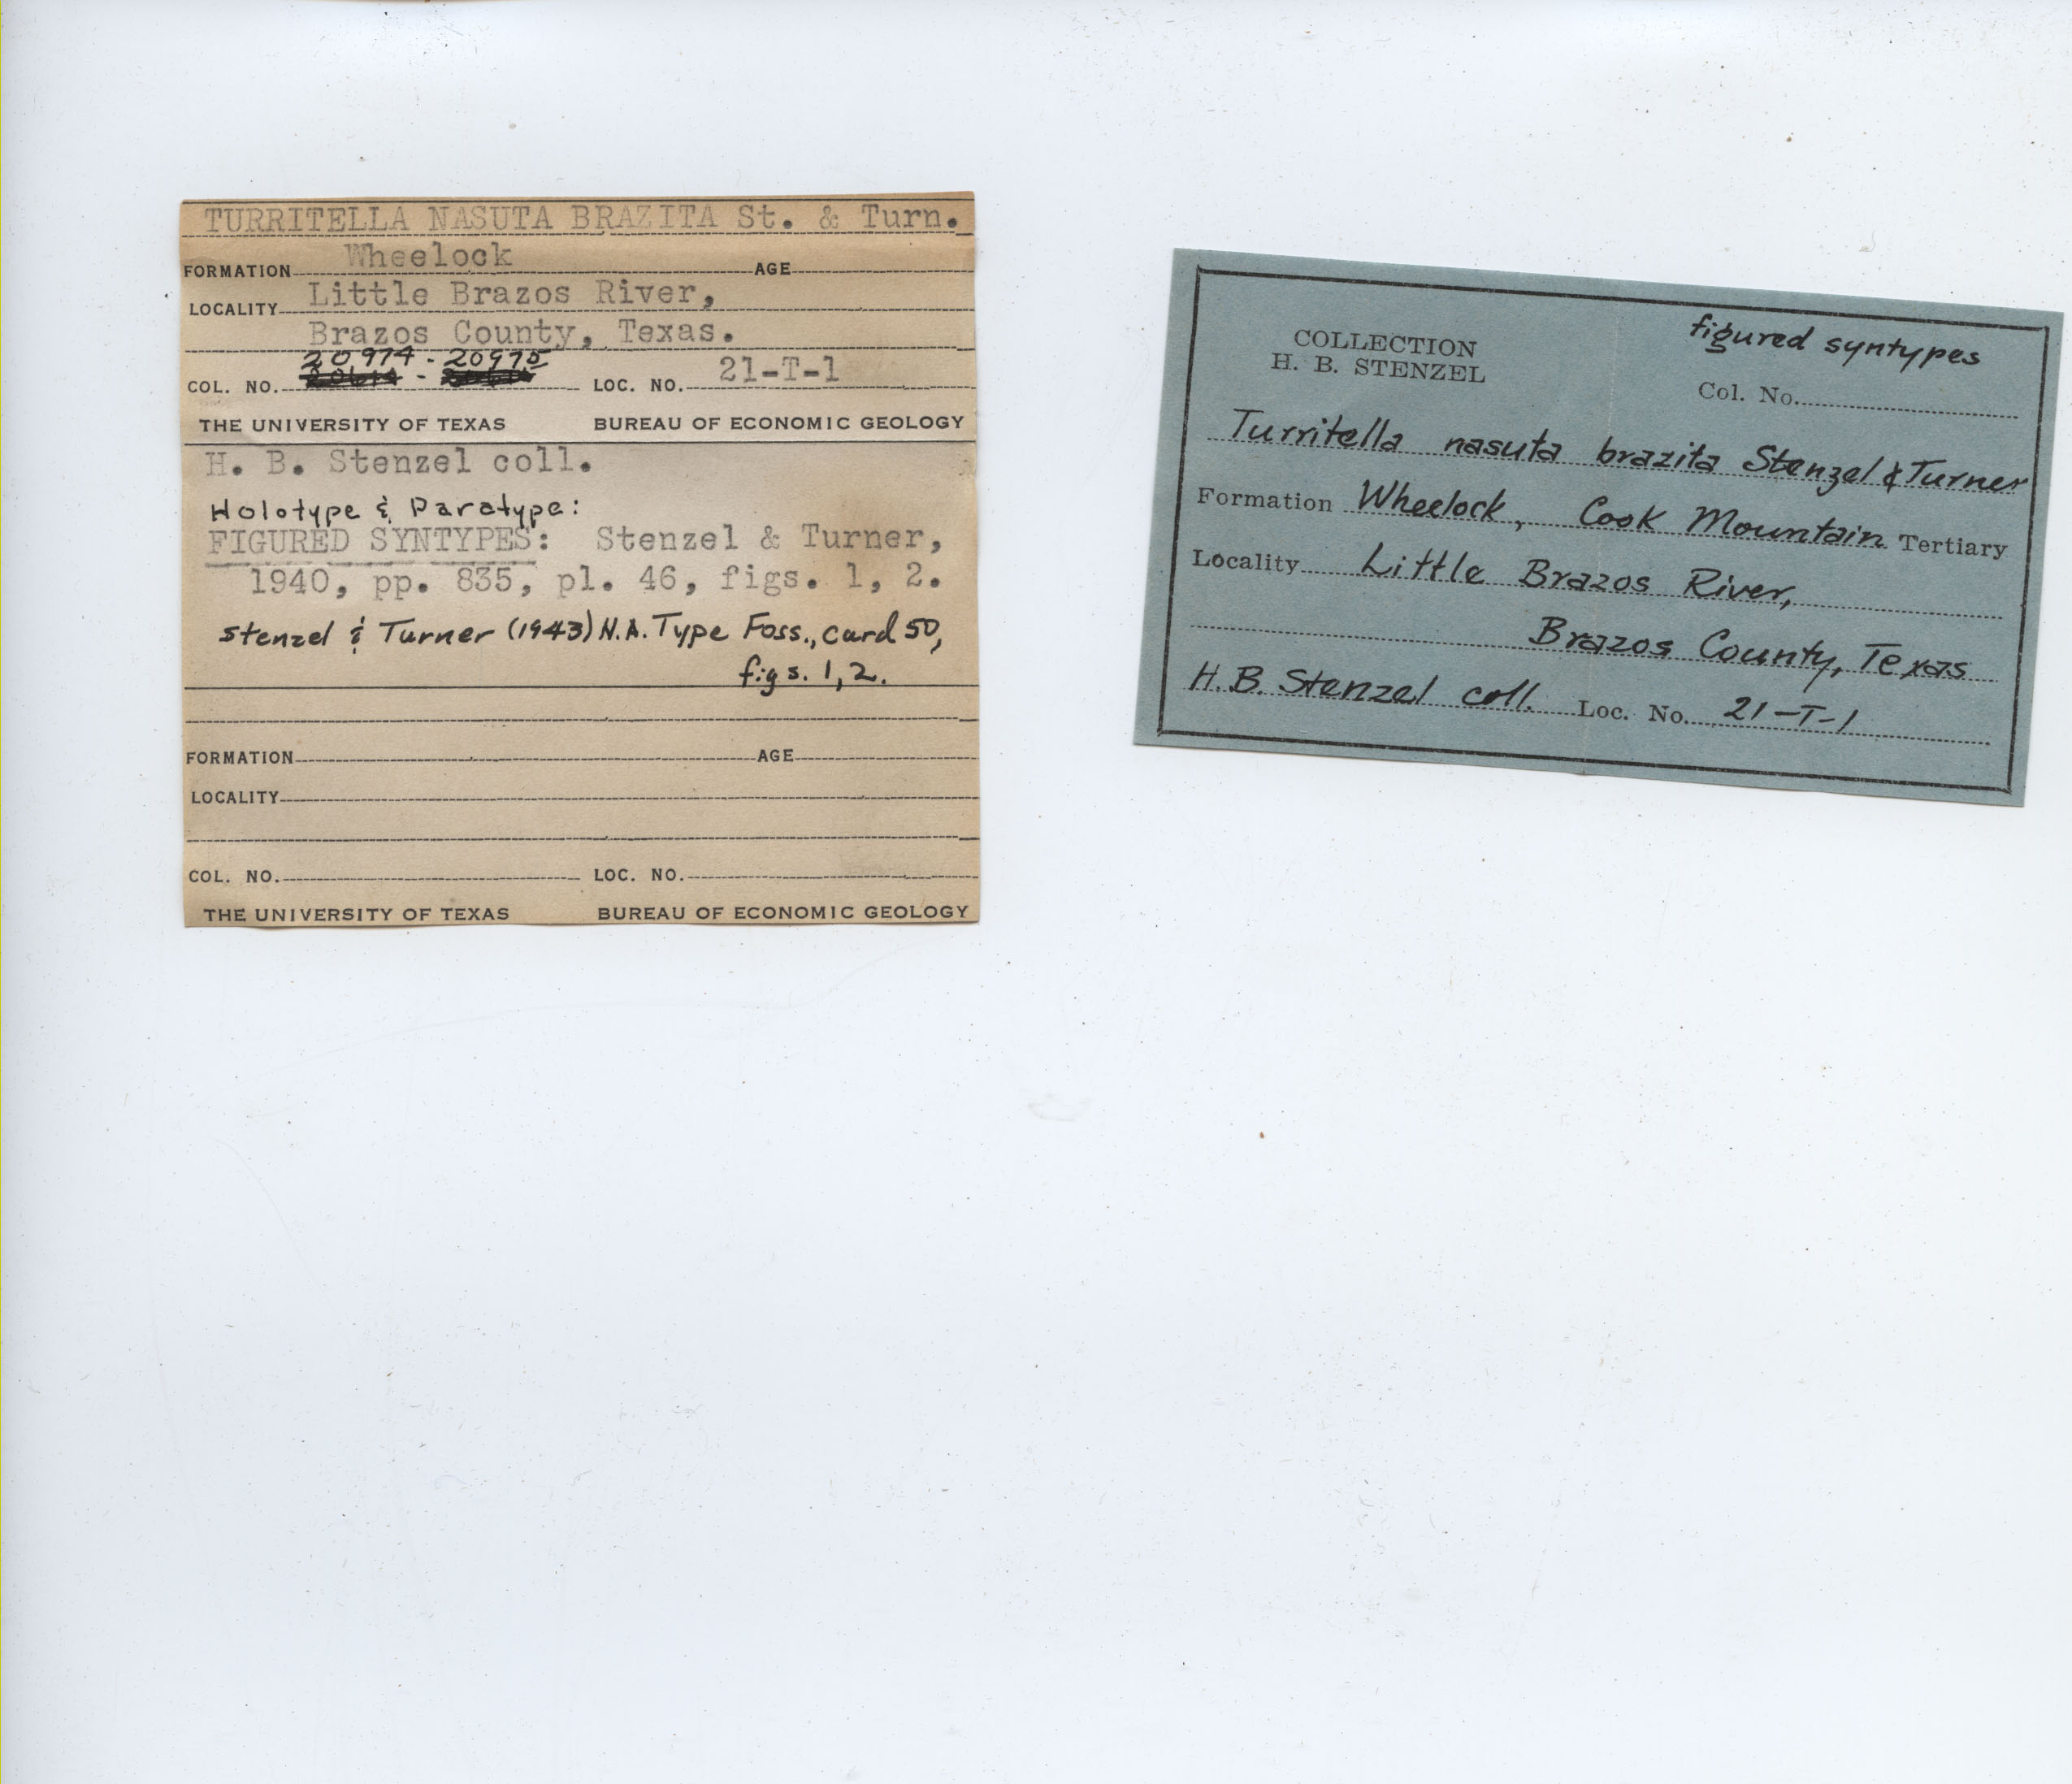 TURRITELLA NASUTA BRAZITA St. & Turn.
FORMATION Wheelock AGE
LOCALITY Little Brazos River,
Brazos County, Texas.
20974 - 20975
COL. NO. - LOC. NO. 21-T-1
THE UNIVERSITY OF TEXAS BUREAU OF ECONOMIC GEOLOGY
H. B. Stenzel coll.
Holotype & Paratype:
FIGURED SYNTYPES: Stenzel & Turner,
1940, pp. 835, pl. 46, figs. 1, 2.
Stenzel & Turner (1943) N.A. Type Foss., card 50,
figs. 1, 2.
FORMATION AGE
LOCALITY
COL. NO. LOC. NO.
THE UNIVERSITY OF TEXAS BUREAU OF ECONOMIC GEOLOGY
figured syntypes
COLLECTION
H. B. STENZEL
Col. No.
Turritella nasuta brazita Stenzel & Turner
Formation Wheelock, Cook Mountain Tertiary
Locality Little Brazos River,
Brazos County, Texas
H. B. Stenzel coll. Loc. No. 21-T-1